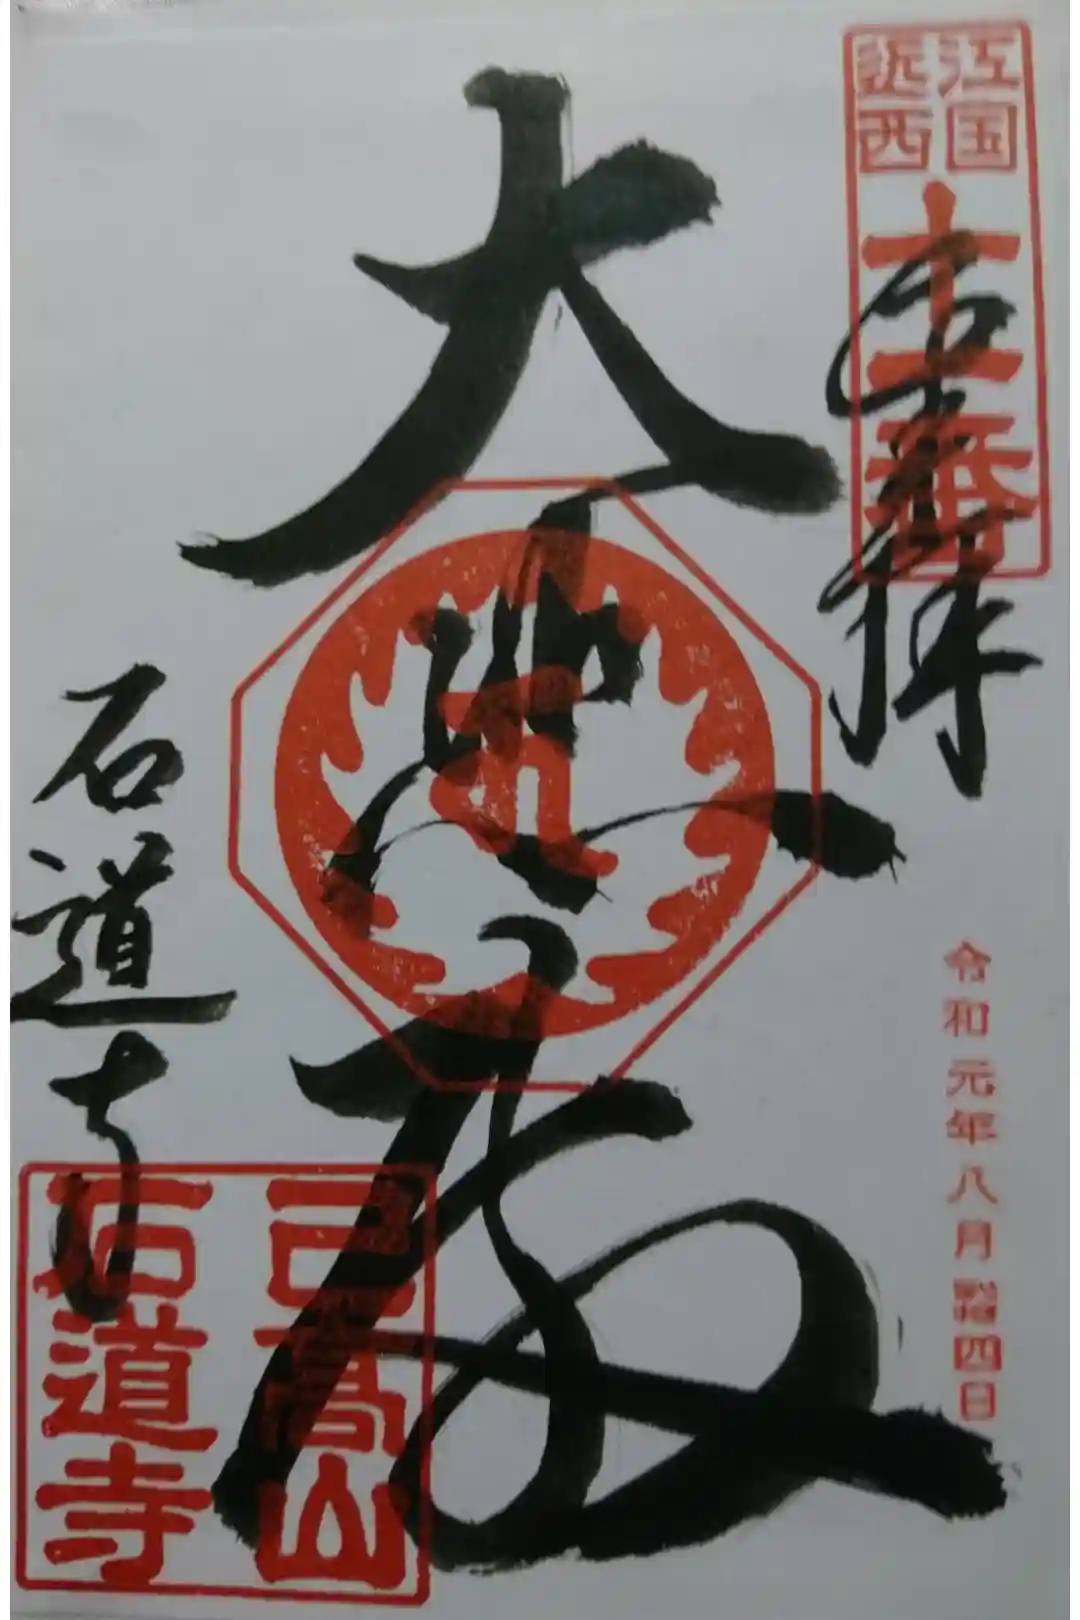 近江
西国
十一番
奉拝
令和元年八月 四日
大悲
石道寺
己髙山
石道寺